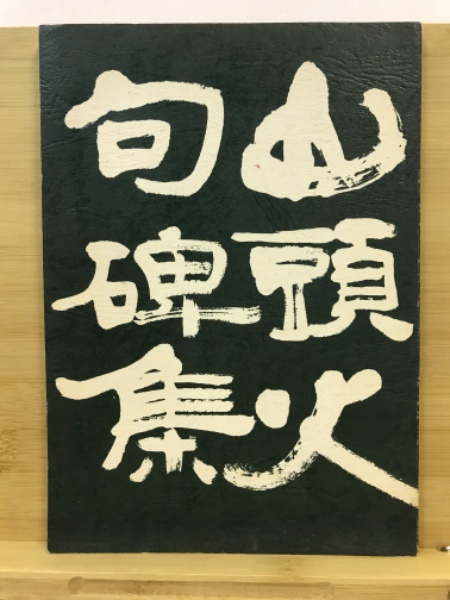 山頭火
句碑集